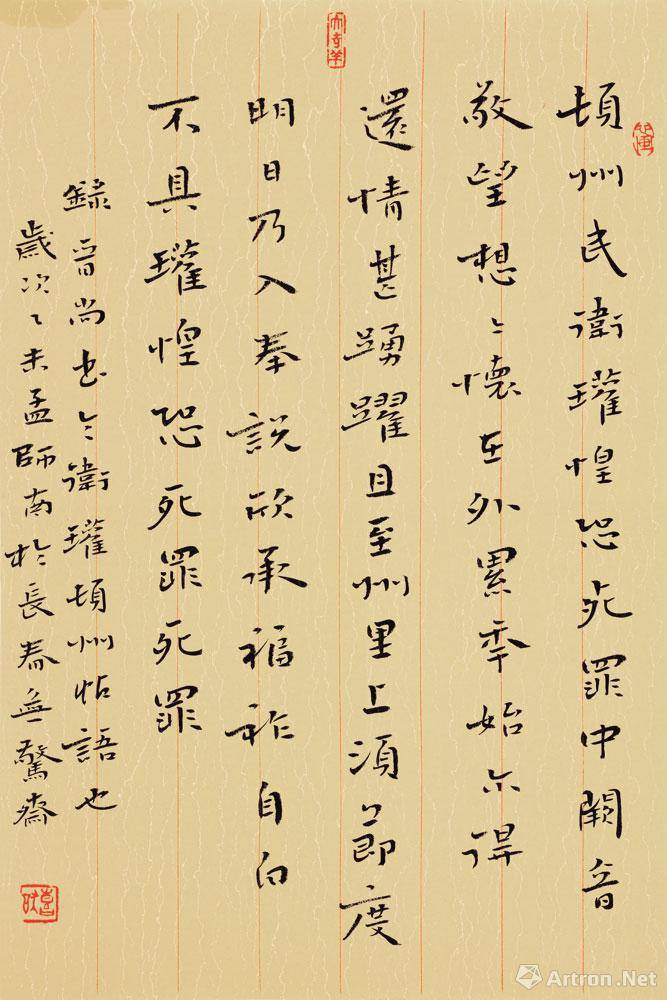 頓州民衛瓘惶恐死罪中闕音
敬望想〻懷在外累年始尒得
還情甚踴躍且至州里上須節度
明日乃入奉説欣承福祚自白
不具瓘惶恐死罪死罪
録晋尚书令衛瓘頓州帖語也
歲次乙未孟師南於長春無驚齋
Artron.Net